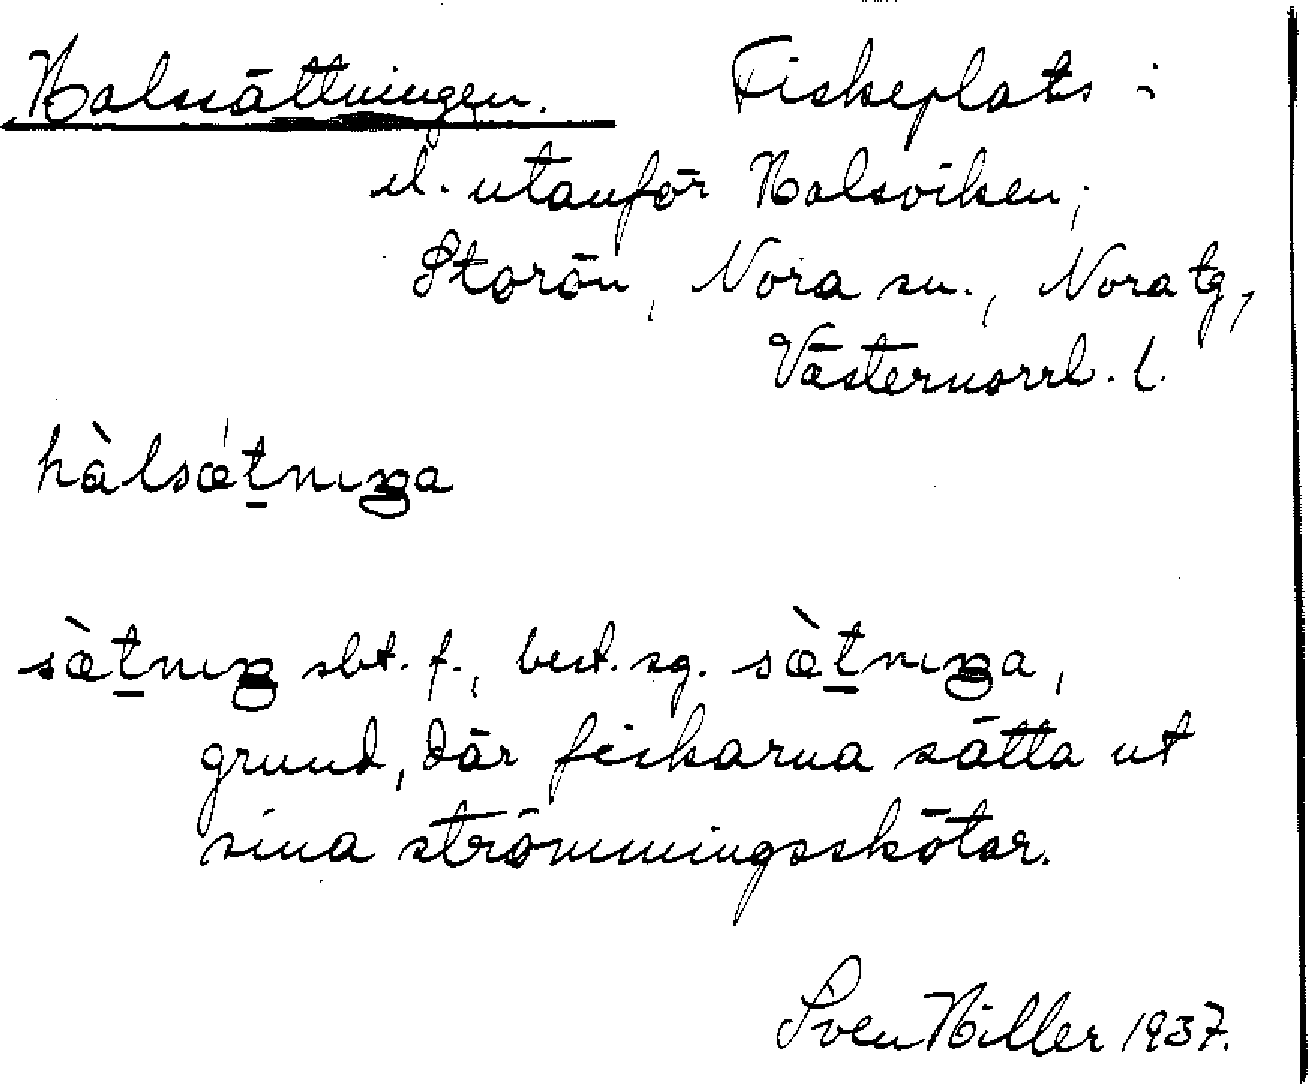 Halssättningen. Fiskeplats i
el. utanför Halsviken,
Storön, Nora sn., Nora tg,
Västernorrl. l.
hàlsǽt̠nıŋa
sæ̀t̠nıŋ sbt. f., best. sg. sæ̀t̠nıŋa,
grund, där fiskarna sätta ut
sina strömmingsskötar.
Sven Hiller 1937.